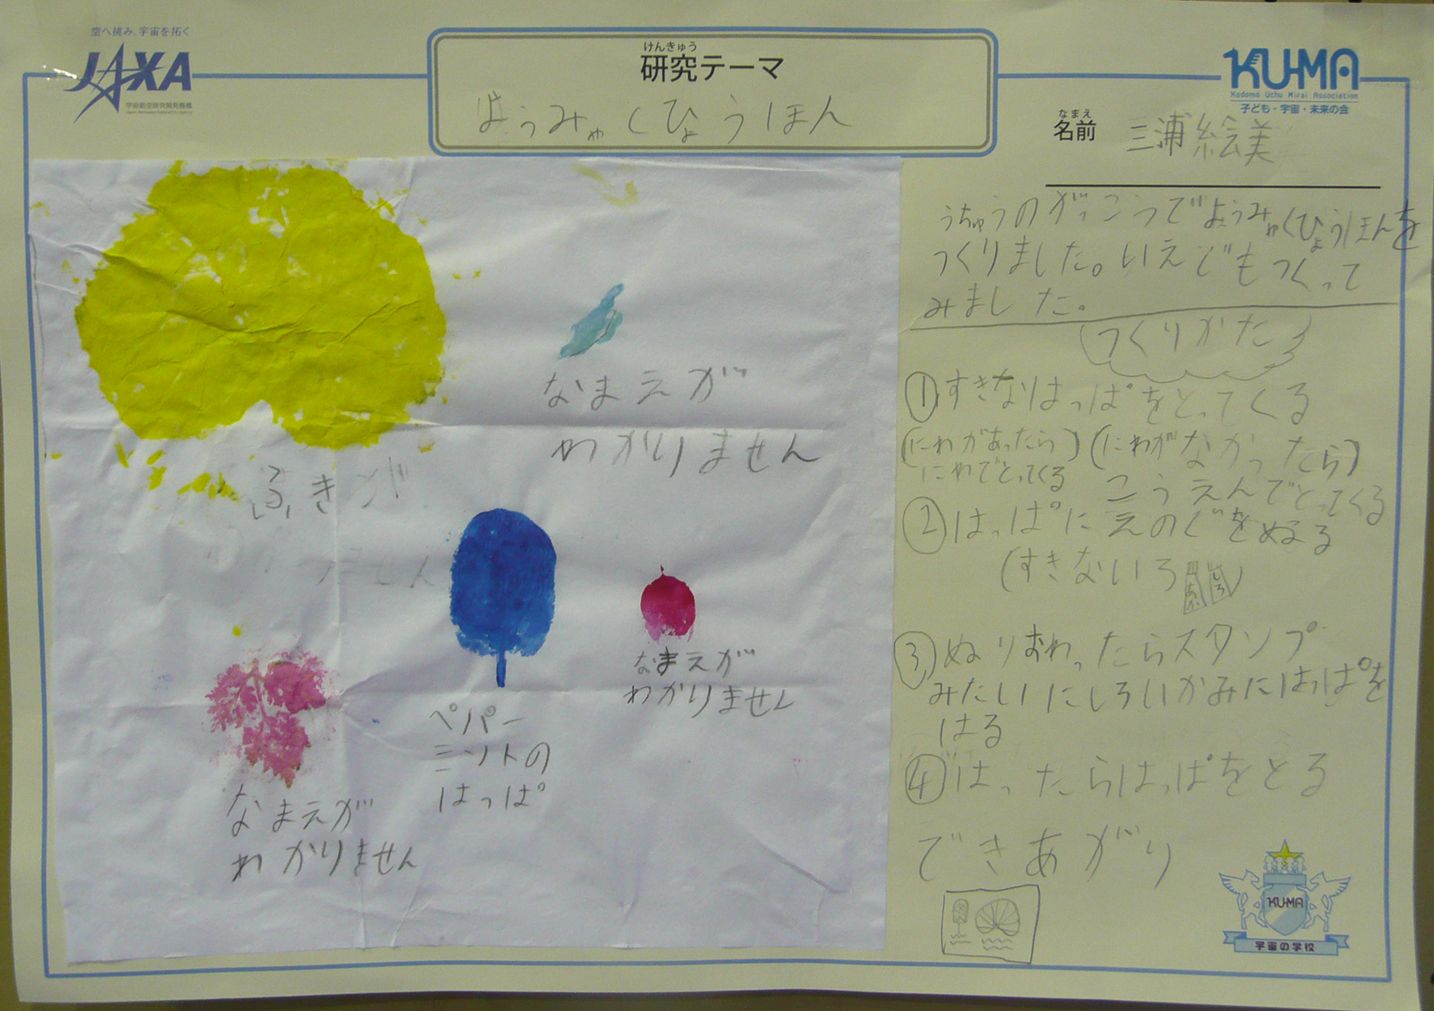 空へ挑み、宇宙を拓く
JAXA
宇宙航空研究開発機構
けんきゅう
研究テーマ
ようみゃくひょうほん
KU-MA
Kodomo Uchu Mirai Association
子ども・宇宙・未来の会
なまえ
名前 三浦絵美
うちゅうのがっこうでようみゃくひょうほんを
つくりました。いえでもつくって
みました。
つくりかた
①すきなはっぱをとってくる
(にわがあったら)(にわがなかったら)
にわでとってくる こうえんでとってくる
②はっぱにえのぐをぬる
(すきないろ
あか
しろ
③ぬりおわったらスタンプ
みたいにしろいかみにはっぱを
はる
④はったらはっぱをとる
できあがり
なまえが
わかりません
ふき
なまえが
わかりません
ペパー
ミントの
はっぱ
なまえが
わかりません
KU-MA
宇宙の学校